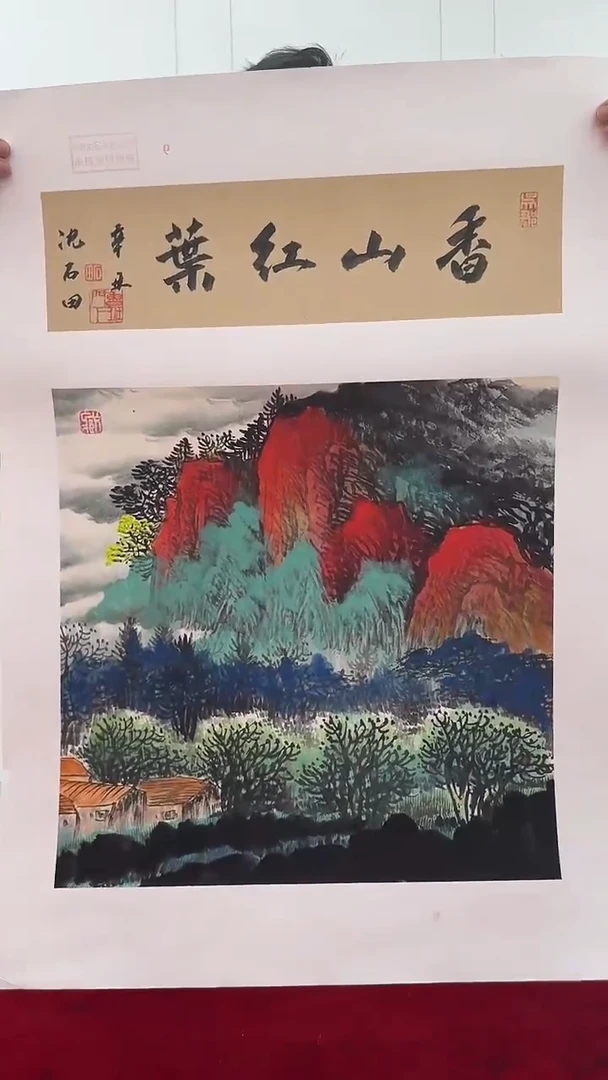 香山紅葉
辛丑
沈石田
藏